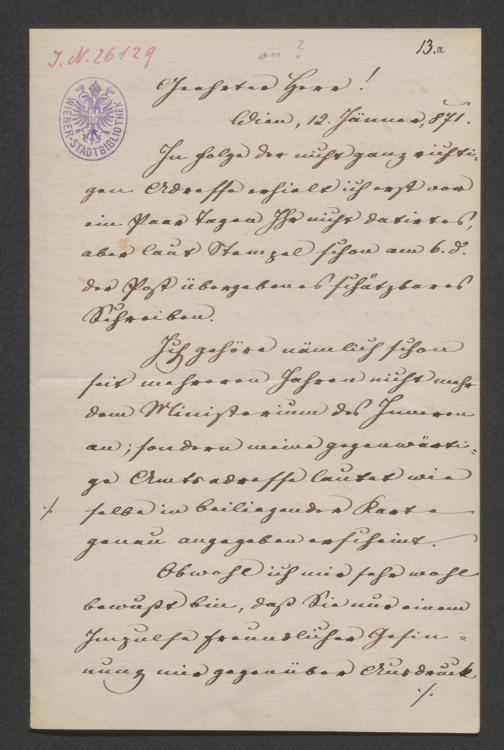 J. N. 26129
an?
13.a
WIENER-STADTBIBLIOTHEK
Geehrter Herr!
Wien, 12. Jänner, 871.
In Folge der nicht ganz richti-
gen Adresse erhielt ich erst vor
ein Paar Tagen Ihr nicht datirtes,
aber laut Stempel schon am 6. d.
der Post übergebenes schätzbares
Schreiben.
Ich gehöre nämlich schon
seit mehreren Jahren nicht mehr
dem Ministerium des Inneren
an; sondern meine gegenwärti-
ge Amtsadresse lautet wie
./. selbe in beiliegender Karte
genau angegeben erscheint.
Obwohl ich mir sehr wohl
bewußt bin, daß Sie nur einem
Impulse freundlicher Gesin-
nung mir gegenüber Ausdruck
./.